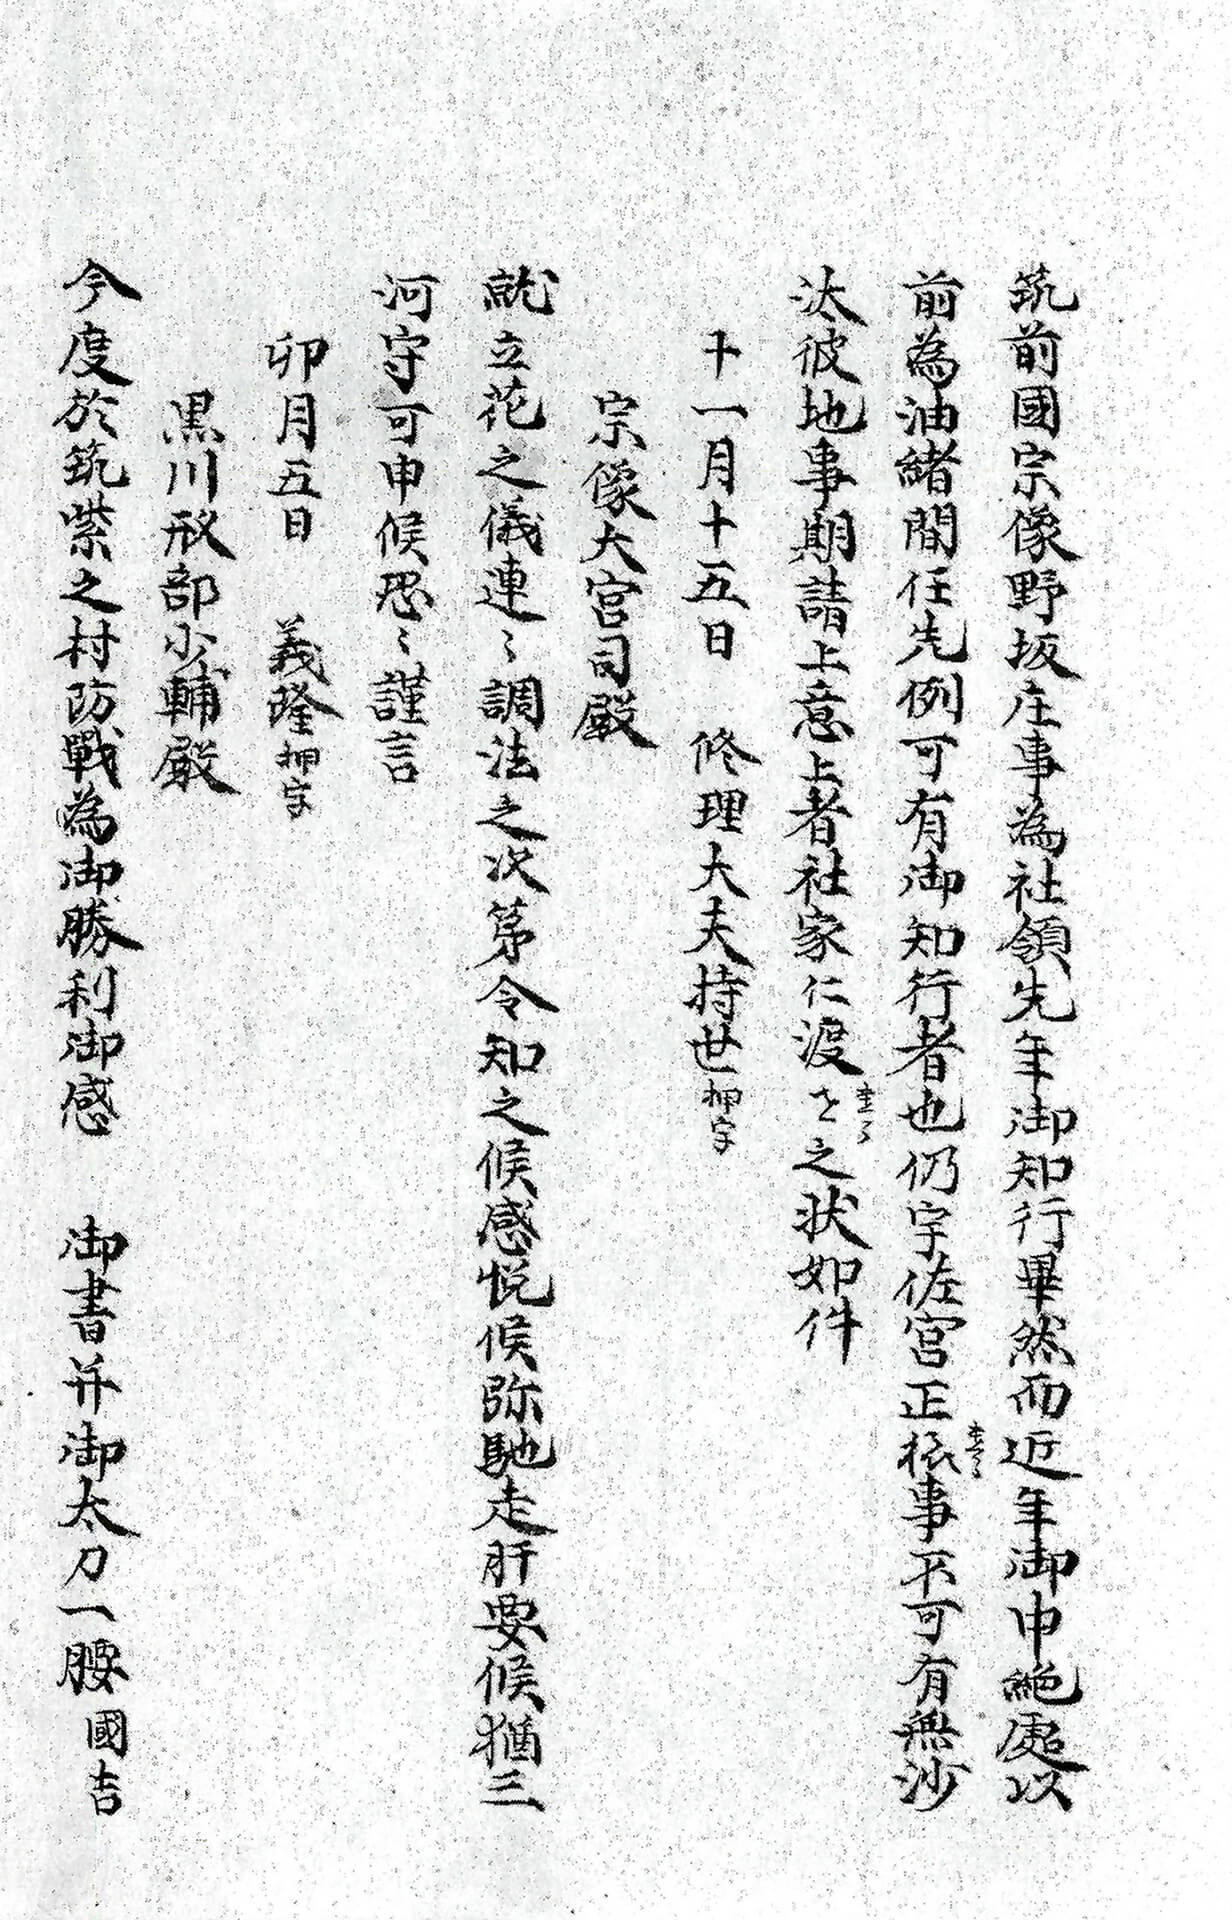 筑前國宗像野坂庄事為社領先年御知行畢然而近年御中絶處以
前為油緒間任先例可有御知行者也仍宇佐宮正棖事不可有無沙
汰彼地事期請上意上者社家仁渡さ之状如件
十一月十五日　修理大夫持世押字
宗像大宮司殿
就立花之儀連〻調法之次第令知之候感悦候弥馳走肝要候猶三
河守可申候恐〻謹言
卯月五日　義隆押字
黒川刑部少輔殿
今度於筑紫之村防戰為御勝利御感　御書并御太刀一腰國吉